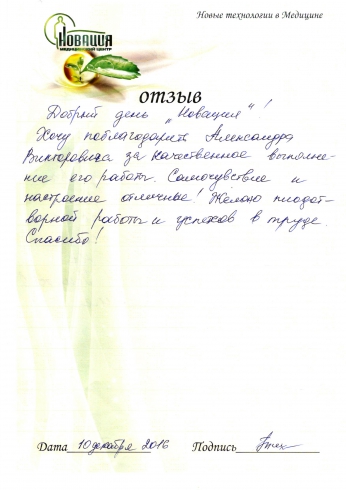 Новые технологии в Медицине
НОВАЦИЯ
МЕДИЦИНСКИЙ ЦЕНТР
ОТЗЫВ
Добрый день „Новация"!
Хочу поблагодарить Александра
Викторовича за качественное выполне-
ние его работы. Самочувствие и
настроение отличные! Желаю плодот-
ворной работы и успехов в труде.
Спасибо!
Дата 10 декабря 2016 Подпись